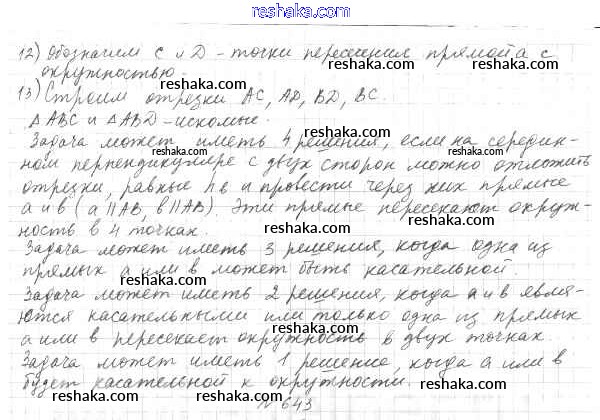 reshaka.com
12) Обозначим C и D - точки пересечения прямой a с
окружностью.
reshaka.com reshaka.com
13) Строим отрезки AC, AD, BD, BC.
△ABC и △ABD - искомые.
reshaka.com reshaka.com
Задача может иметь 4 решения, если на середин-
ном перпендикуляре с двух сторон можно отложить
reshaka.com reshaka.com
отрезки, равные h в и провести через них прямые
a и в (a||AB, в||AB). Эти прямые пересекают окруж-
reshaka.com reshaka.com
ность в 4 точках.
Задача может иметь 3 решения, когда одна из
reshaka.com reshaka.com
прямых a или в может быть касательной.
Задача может иметь 2 решения, когда a и в явля-
reshaka.com reshaka.com
ются касательными или только одна из прямых
a или в пересекает окружность в двух точках.
reshaka.com reshaka.com
Задача может иметь 1 решение, когда a или в
будет касательной к окружности.
reshaka.com reshaka.com
№ 643